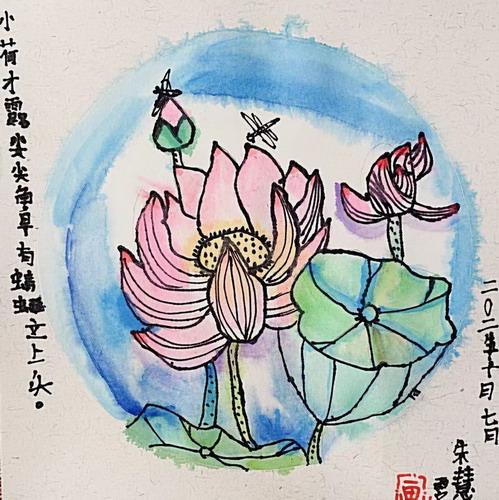 小荷才露尖尖角早有蜻蜓立上头。
二〇二一年十月七日
朱慧
画